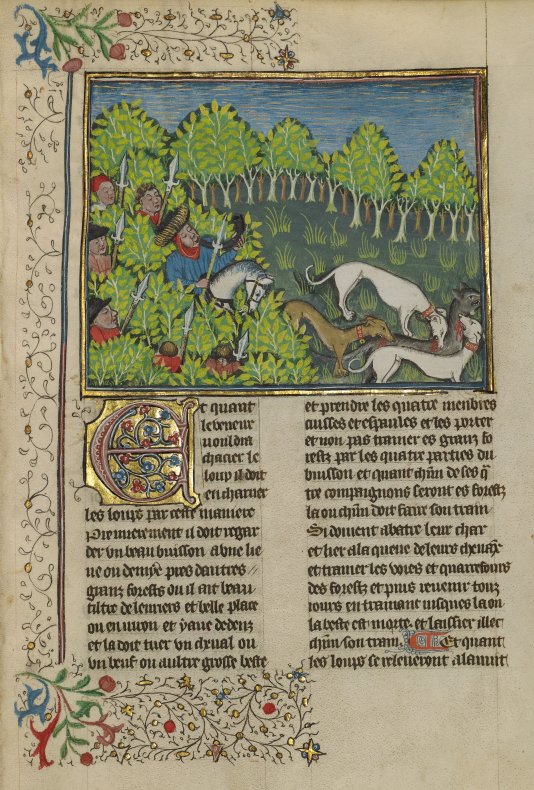 Et quant
le veneur
vouldra
chacer le
loup il doit
encharner
les loups par ceste maniere
Premierement il doit regar
der un beau buisson a une lie
ue ou demye pres dautres
granz forests ou il ait beau
tiltre de leuriers et belle place
ou enuiron et yaue dedenz
et la doit tuer un cheual ou
un beuf ou aultre grosse beste
et prendre les quatre menbres
cuisses et espaules et les porter
et non pas trainer es granz fo
restz par les quatre parties du
buisson et quant chun de ses q̄
tre compaignons seront es forestz
la ou chun doit faire son train
Si doiuent abatre leur char
et lier a la queue de leurs cheuaux
et trainer les voies et quarrefours
des forestz et puis reuenir touz
iours en trainant iusques la on
la beste est morte et laissier illec
chun son train Et quant
les loups se releueront a la nuit